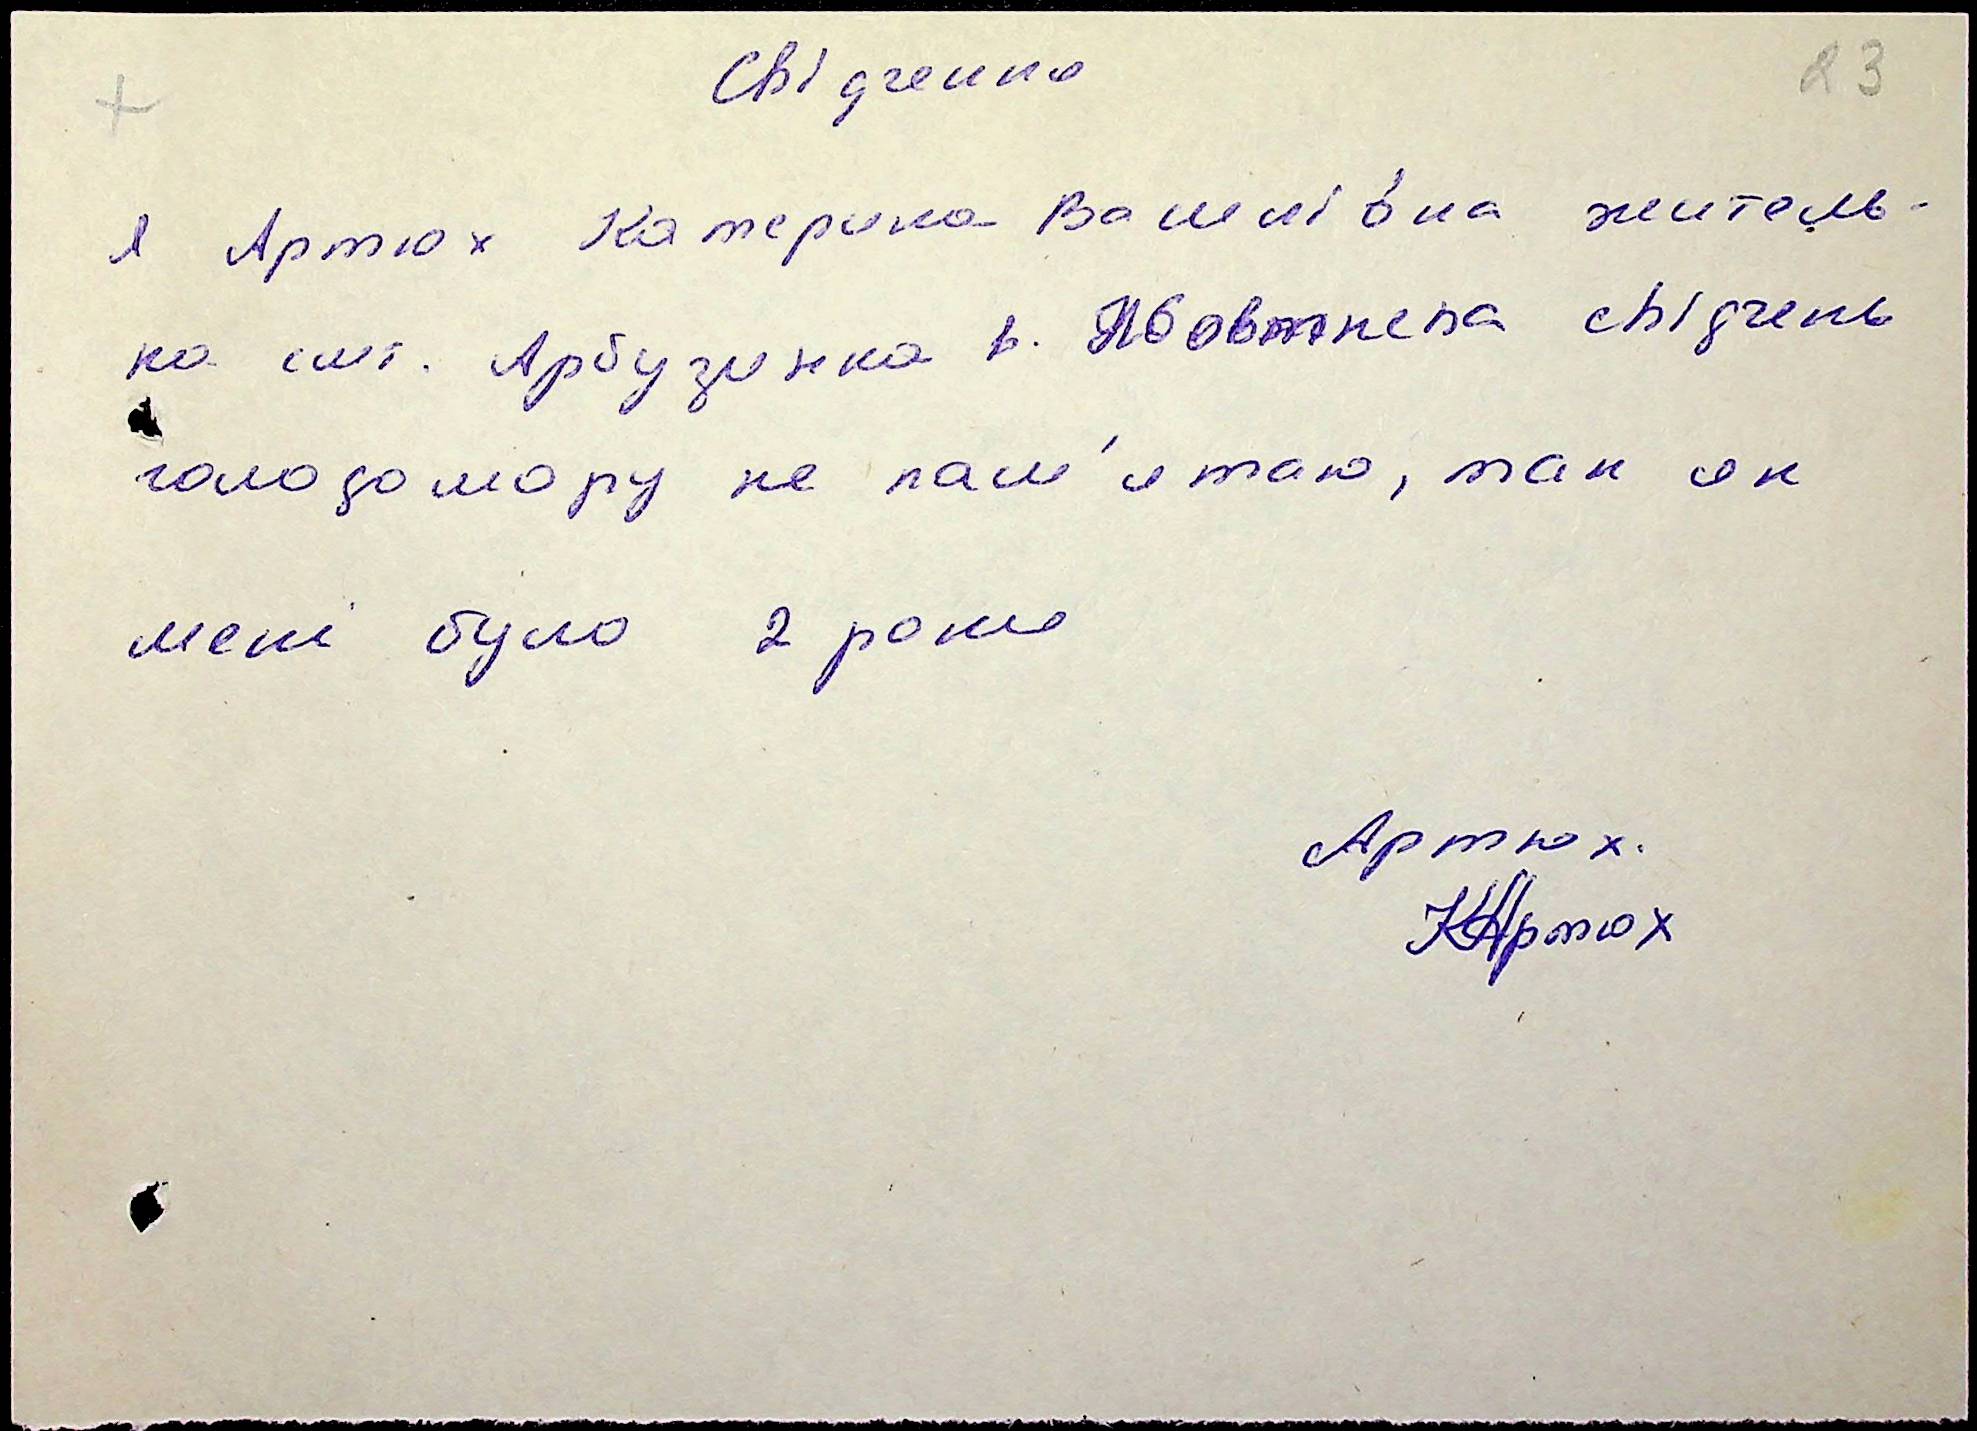 23
Свідчення
Я Артюх Катерина Василівна житель-
ка смт. Арбузинка в. Жовтнева свідчень
голодомору не пам'ятаю, так як
мені було 2 роки
Артюх.
КАртюх